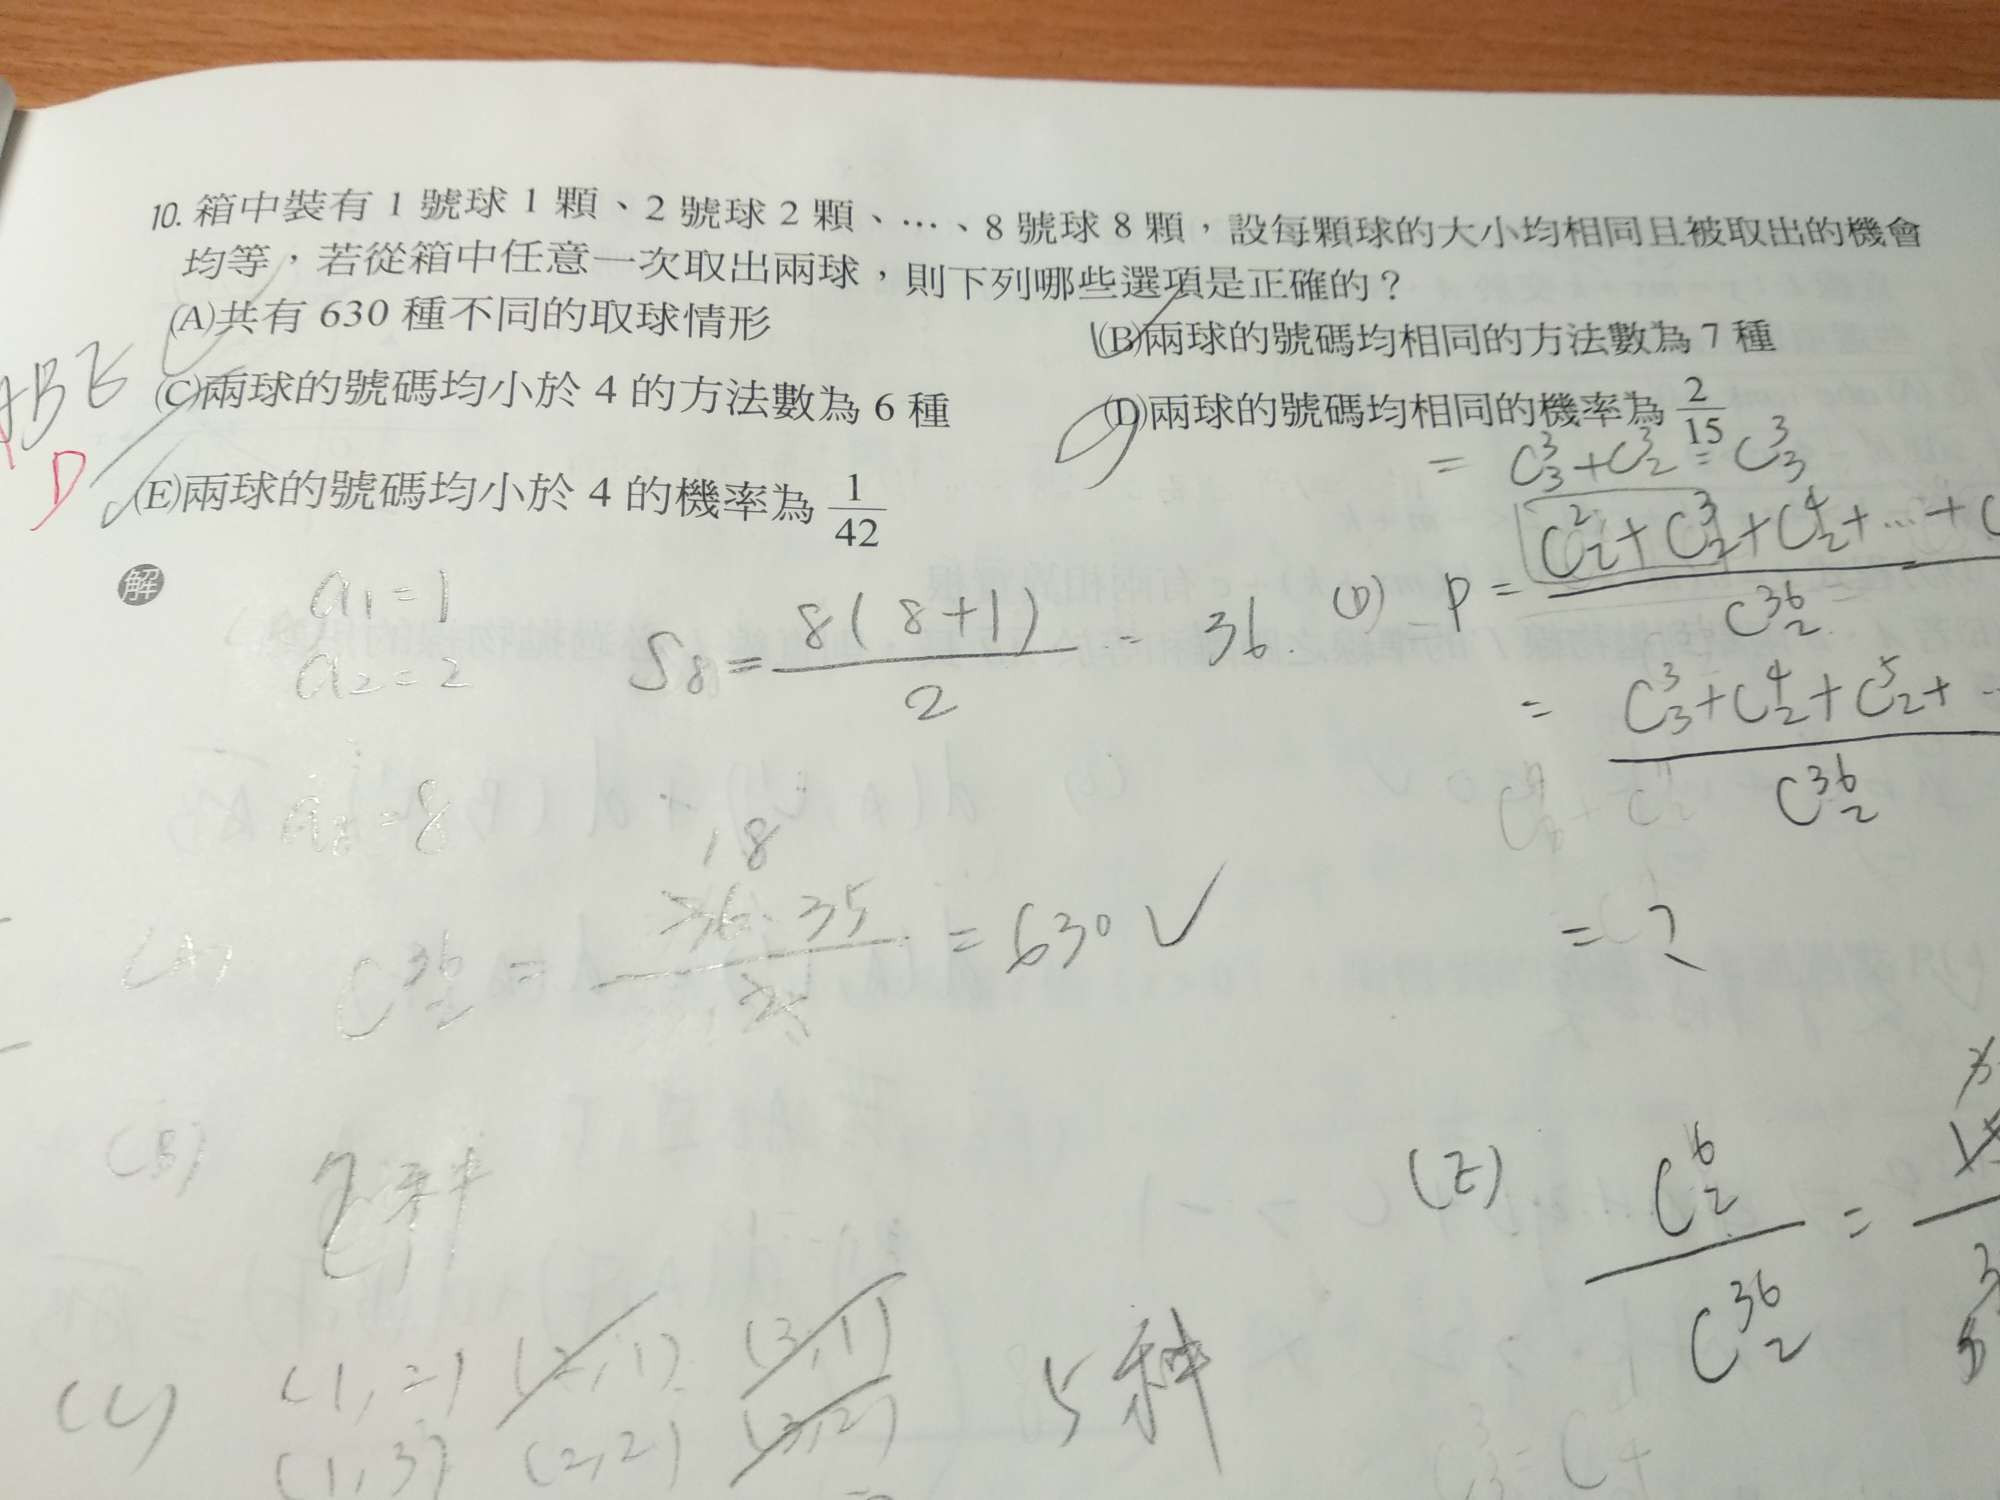 10. 箱中裝有 1 號球 1 顆、2 號球 2 顆、…、8 號球 8 顆，設每顆球的大小均相同且被取出的機會
均等，若從箱中任意一次取出兩球，則下列哪些選項是正確的？
(A)共有 630 種不同的取球情形
(B)兩球的號碼均相同的方法數為 7 種
(C)兩球的號碼均小於 4 的方法數為 6 種
(D)兩球的號碼均相同的機率為 2/15
(E)兩球的號碼均小於 4 的機率為 1/42
ABE
D
解
= C³₃ + C³₂ = C³₃
a₁=1
a₂=2
a₈=8
S₈ = 8(8+1)/2 = 36
(D) P = C²₂ + C³₂ + C⁴₂ + … + C / C³⁶₂
= C³₃ + C⁴₂ + C⁵₂ + / C³⁶₂
(A) C³⁶₂ = 36·35/2 = 630 ✓
18
(B) 7种
(E) C⁶₂ / C³⁶₂ =
(C) (1,2) (2,1) (3,1)
(1,3) (2,2) (3,2)
5种